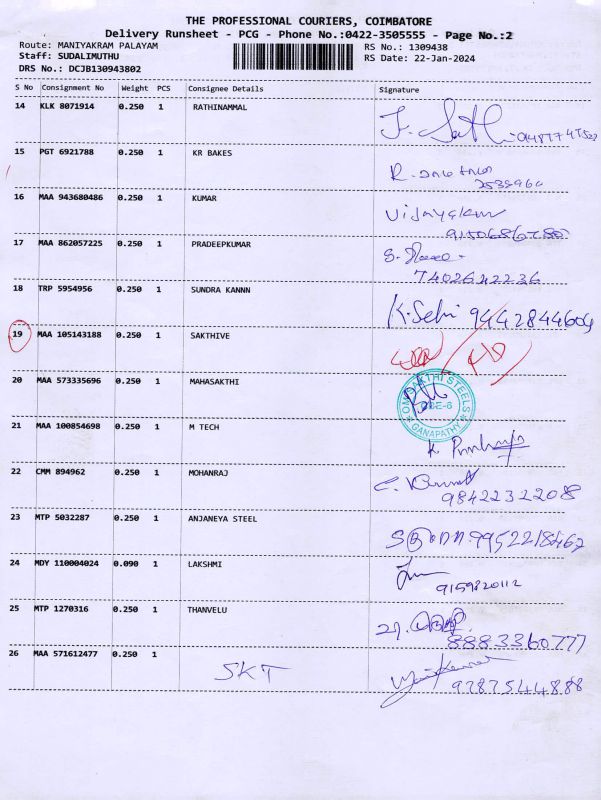 THE PROFESSIONAL COURIERS, COIMBATORE
Delivery Runsheet - PCG - Phone No.:0422-3505555 - Page No.:2
Route: MANIYAKRAM PALAYAM
RS No.: 1309438
Staff: SUDALIMUTHU
RS Date: 22-Jan-2024
DRS No.: DCJB130943802
S No Consignment No Weight PCS Consignee Details Signature
14 KLK 8071914 0.250 1 RATHINAMMAL
15 PGT 6921788 0.250 1 KR BAKES
16 MAA 943680486 0.250 1 KUMAR
17 MAA 862057225 0.250 1 PRADEEPKUMAR
7402642236
18 TRP 5954956 0.250 1 SUNDRA KANNN
9442844604
19 MAA 105143188 0.250 1 SAKTHIVE
20 MAA 573335696 0.250 1 MAHASAKTHI
OM SAKTHI STEELS
GANAPATHY
21 MAA 100854698 0.250 1 M TECH
22 CMM 894962 0.250 1 MOHANRAJ
9842232 2088
23 MTP 5032287 0.250 1 ANJANEYA STEEL
9952218462
24 MDY 110004024 0.090 1 LAKSHMI
9159820112
25 MTP 1270316 0.250 1 THANVELU
8883360777
26 MAA 571612477 0.250 1 SKT
9787544888